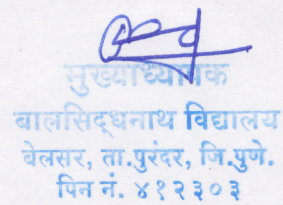 मुख्याध्यापक
बालसिद्धनाथ विद्यालय
बेलसर, ता.पुरंदर, जि.पुणे.
पिन नं. ४१२३०३